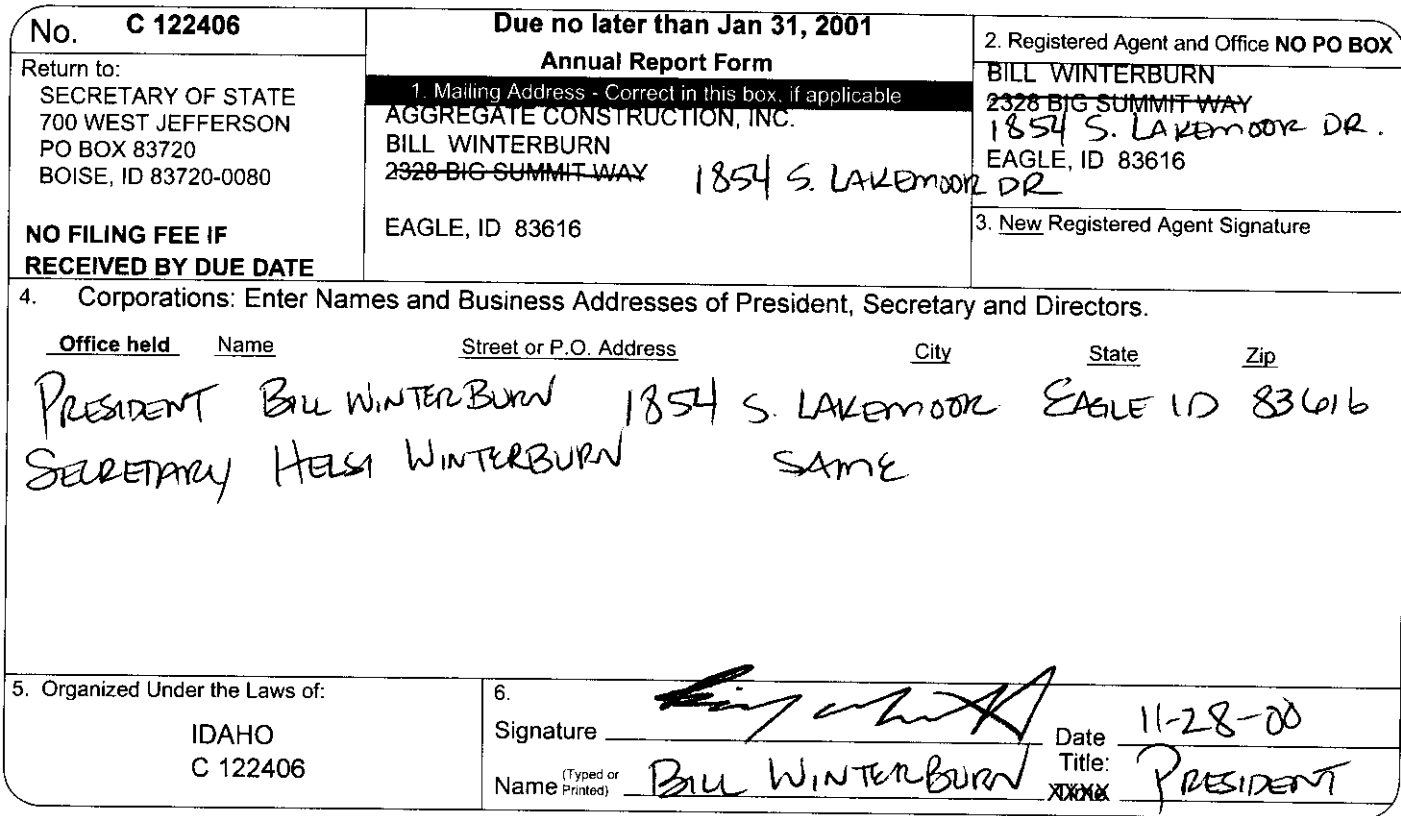 No. C 122406
Return to:
SECRETARY OF STATE
700 WEST JEFFERSON
PO BOX 83720
BOISE, ID 83720-0080
NO FILING FEE IF
RECEIVED BY DUE DATE
Due no later than Jan 31, 2001
Annual Report Form
1. Mailing Address - Correct in this box, if applicable
AGGREGATE CONSTRUCTION, INC.
BILL WINTERBURN
2328 BIG SUMMIT WAY 1854 S. LAKEMOOR DR
EAGLE, ID 83616
2. Registered Agent and Office NO PO BOX
BILL WINTERBURN
2328 BIG SUMMIT WAY
1854 S. LAKEMOOR DR.
EAGLE, ID 83616
3. New Registered Agent Signature
4. Corporations: Enter Names and Business Addresses of President, Secretary and Directors.
Office held Name Street or P.O. Address City State Zip
PRESIDENT BILL WINTERBURN 1854 S. LAKEMOOR EAGLE ID 83616
SECRETARY WINTERBURN SAME
5. Organized Under the Laws of:
IDAHO
C 122406
6.
Signature Date 11-28-00
Name (Typed or Printed) BILL WINTERBURN Title: PRESIDENT